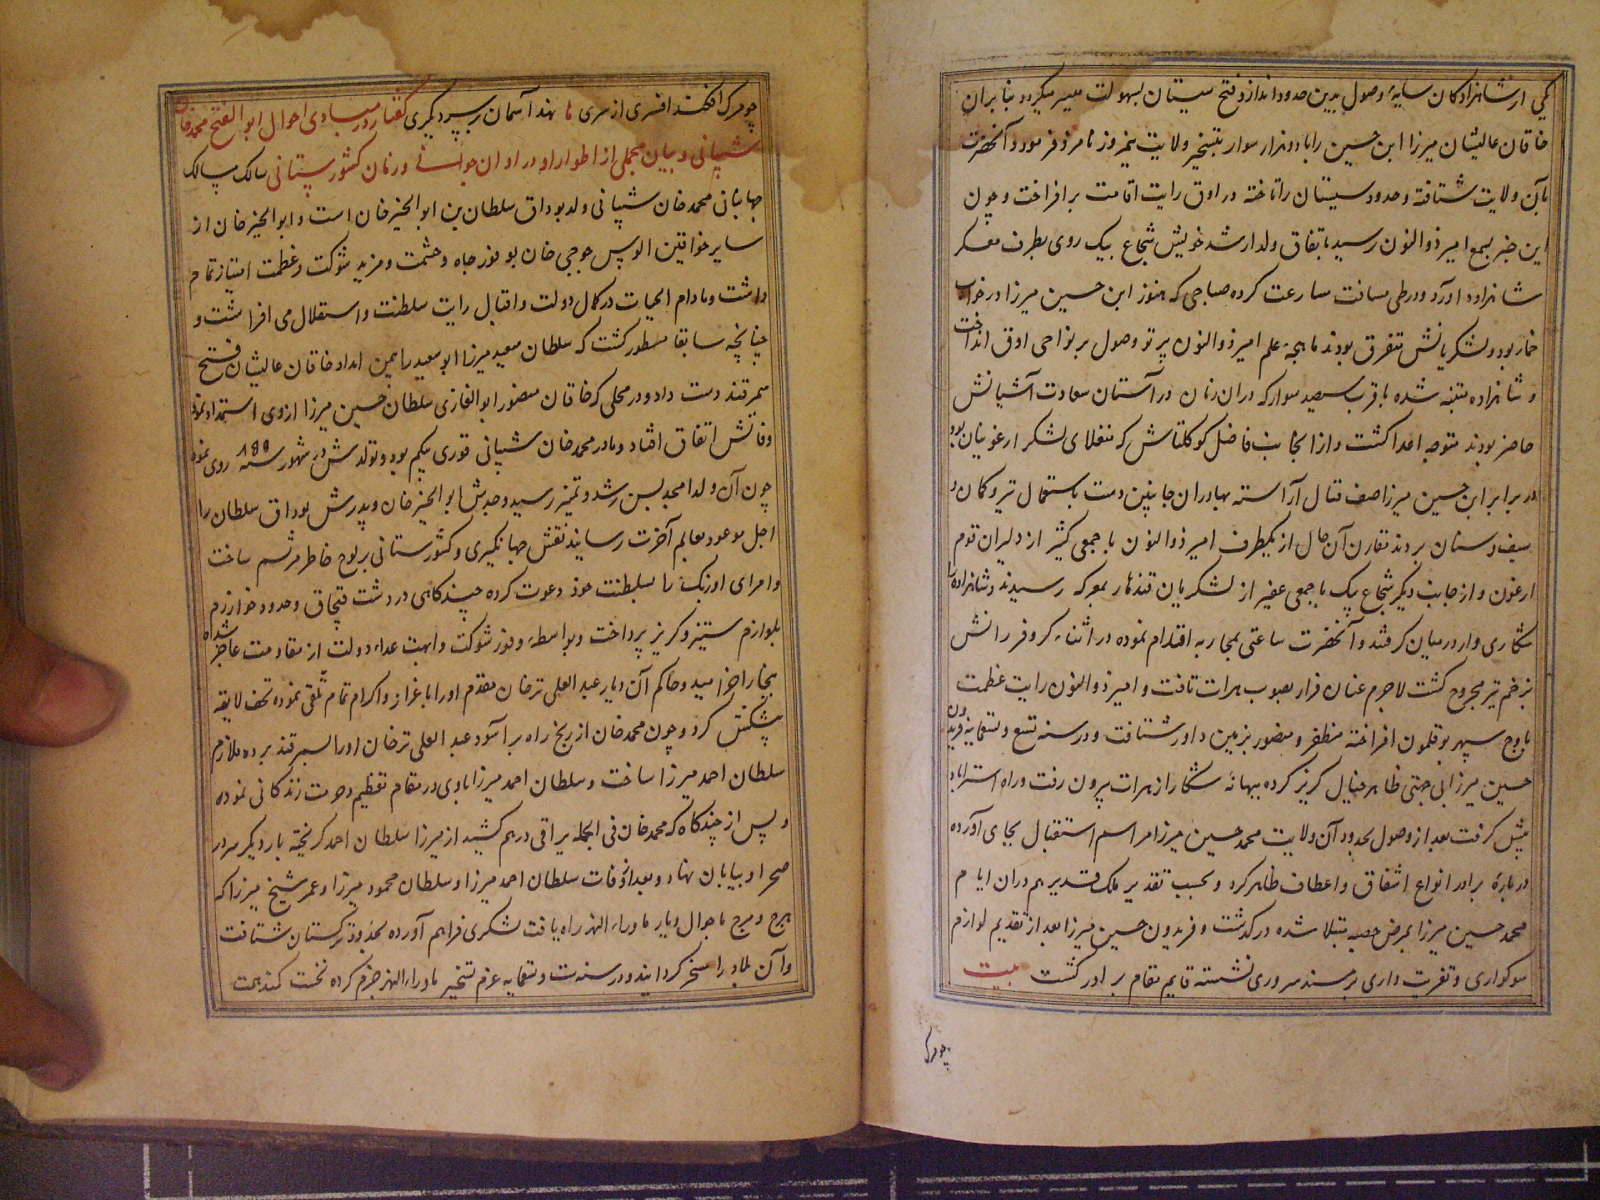 یکی از شاهزادگان سایهٔ وصول بدین حدود اندازد فتح سیستان بسهولت میسر میکردد بنابران
خاقان عالیشان میرزا ابن حسین را با دو هزار سوار بتسخیر ولایت نیمروز نامزد فرمود و آنحضرت
بآن ولایت شتافته و حدود سیستان را تاخته در اوق رایت اقامت برافراخت و چون
این خبر بسمع امیر ذوالنون رسید باتفاق ولد ارشد خویش شجاع بیک روی بطرف معسکر
شاهزاده آورد و در طی مسافت مسارعت کرده صباحی که هنوز ابن حسین میرزا در خواب
خمار بود و لشکریانش متفرق بودند ماهچه علم امیر ذوالنون پرتو وصول بر نواحی اوق انداخت
و شاهزاده متنبه شده با قرب سیصد سوار که دران زمان در آستان سعادت آشیانش
حاضر بودند متوجه اعدا کشت و ازانجانب فاضل کوکلتاش که منغلای لشکر ارغونیان بود
در برابر ابن حسین میرزا صف قتال آراسته بهادران جانبین دست باستعمال تیر و کمان و
سیف و سنان بردند مقارن آن حال از یکطرف امیر ذوالنون با جمعی کثیر از دلیران قوم
ارغون و از جانب دیکر شجاع بیک با جمعی غفیر از لشکریان قندهار بمعرکه رسیدند و شاهزاده را
شکاری وار در میان کرفتند و آنحضرت ساعتی بمحاربه اقدام نموده در اثناء کر و فر رانش
بزخم تیر مجروح کشت لاجرم عنان فرار بصوب هرات تافت و امیر ذوالنون رایت عظمت
باوج سپهر بوقلمون افراخته مظفر و منصور بزمین داور شتافت و در سنه تسع و تسعمایه فریدون
حسین میرزا بی جهتی ظاهر خیال کریز کرده ببهانهٔ شکار از هرات بیرون رفت و راه استراباد
پیش کرفت بعد از وصول بحدود آن ولایت محمد حسین میرزا مراسم استقبال بجای آورده
دربارهٔ برادر انواع اشفاق و اعطاف ظاهر کرد و بحسب تقدیر ملک قدیر هم دران ایام
محمد حسین میرزا بمرض حصبه مبتلا شده درکذشت و فریدون حسین میرزا بعد از تقدیم لوازم
سوکواری و تعزیت داری بر مسند سروری نشسته قایم مقام برادر کشت بیت
چو مرک
چو مرک افکند افسری از سری ها نهد آسمان بر سر دیکری کفتار در مبادی احوال ابو الفتح محمد خان
شیبانی و بیان مجملی از اطوار او در اوان جوانی و زمان کشورستانی سالک مسالک
جهانبانی محمد خان شیبانی ولد بوداق سلطان بن ابو الخیر خان است و ابو الخیر خان از
سایر خواقین الوس جوجی خان بوفور جاه و حشمت و مزید شوکت و عظمت امتیاز تمام
داشت و مادام الحیات در کمال دولت و اقبال رایت سلطنت و استقلال می افراشت و
چنانچه سابقا مسطور کشت که سلطان سعید میرزا ابو سعید را بیمن امداد خاقان عالیشان فتح
سمرقند دست داد و در محلی که خاقان منصور ابو الغازی سلطان حسین میرزا از وی استمداد نمود
وفاتش اتفاق افتاد و مادر محمد خان شیبانی قوری بیکم بود و تولدش در شهور سنه ۸۵۵ روی نموده
چون آن ولد امجد بسن رشد و تمیز رسید و جدش ابو الخیر خان و پدرش بوداق سلطان را
اجل موعود بعالم آخرت رسانید نقش جهانکیری و کشورستانی بر لوح خاطر مرتسم ساخت
و امرای اوزبک را بسلطنت خود دعوت کرده چندکاهی در دشت قبچاق و حدود خوارزم
بلوازم ستیز و کریز پرداخت و بواسطهٔ وفور شوکت و ابهت اعداء دولت از مقاومت عاجز شده
ببخارا خرامید و حاکم آن دیار عبد العلی ترخان مقدم او را باعزاز و اکرام تمام تلقی نموده تحف لایقه
پیشکش کرد و چون محمد خان از رنج راه برآسود عبد العلی ترخان او را بسمرقند برده ملازم
سلطان احمد میرزا ساخت و سلطان احمد میرزا با وی در مقام تعظیم و حرمت زندکانی نموده
و پس از چندکاه که محمد خان فی الجمله یراقی درهم کشید از میرزا سلطان احمد کریخته بار دیکر سر در
صحرا و بیابان نهاد و بعد از فوت سلطان احمد میرزا و سلطان محمود میرزا و عمر شیخ میرزا که
هرج و مرج باحوال دیار ماوراء النهر راه یافت لشکری فراهم آورده بحدود ترکستان شتافت
و آن بلاد را مسخر کردانید و در سنه ست و تسعمایه عزم تسخیر ماوراء النهر جزم کرده نخست کمند همت